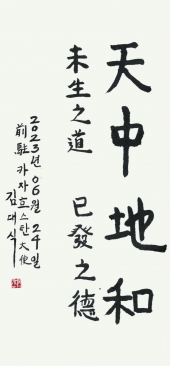 天中地和
未生之道 已發之德
2023년 06월 24일
前駐 카자흐스탄 大使
김대식